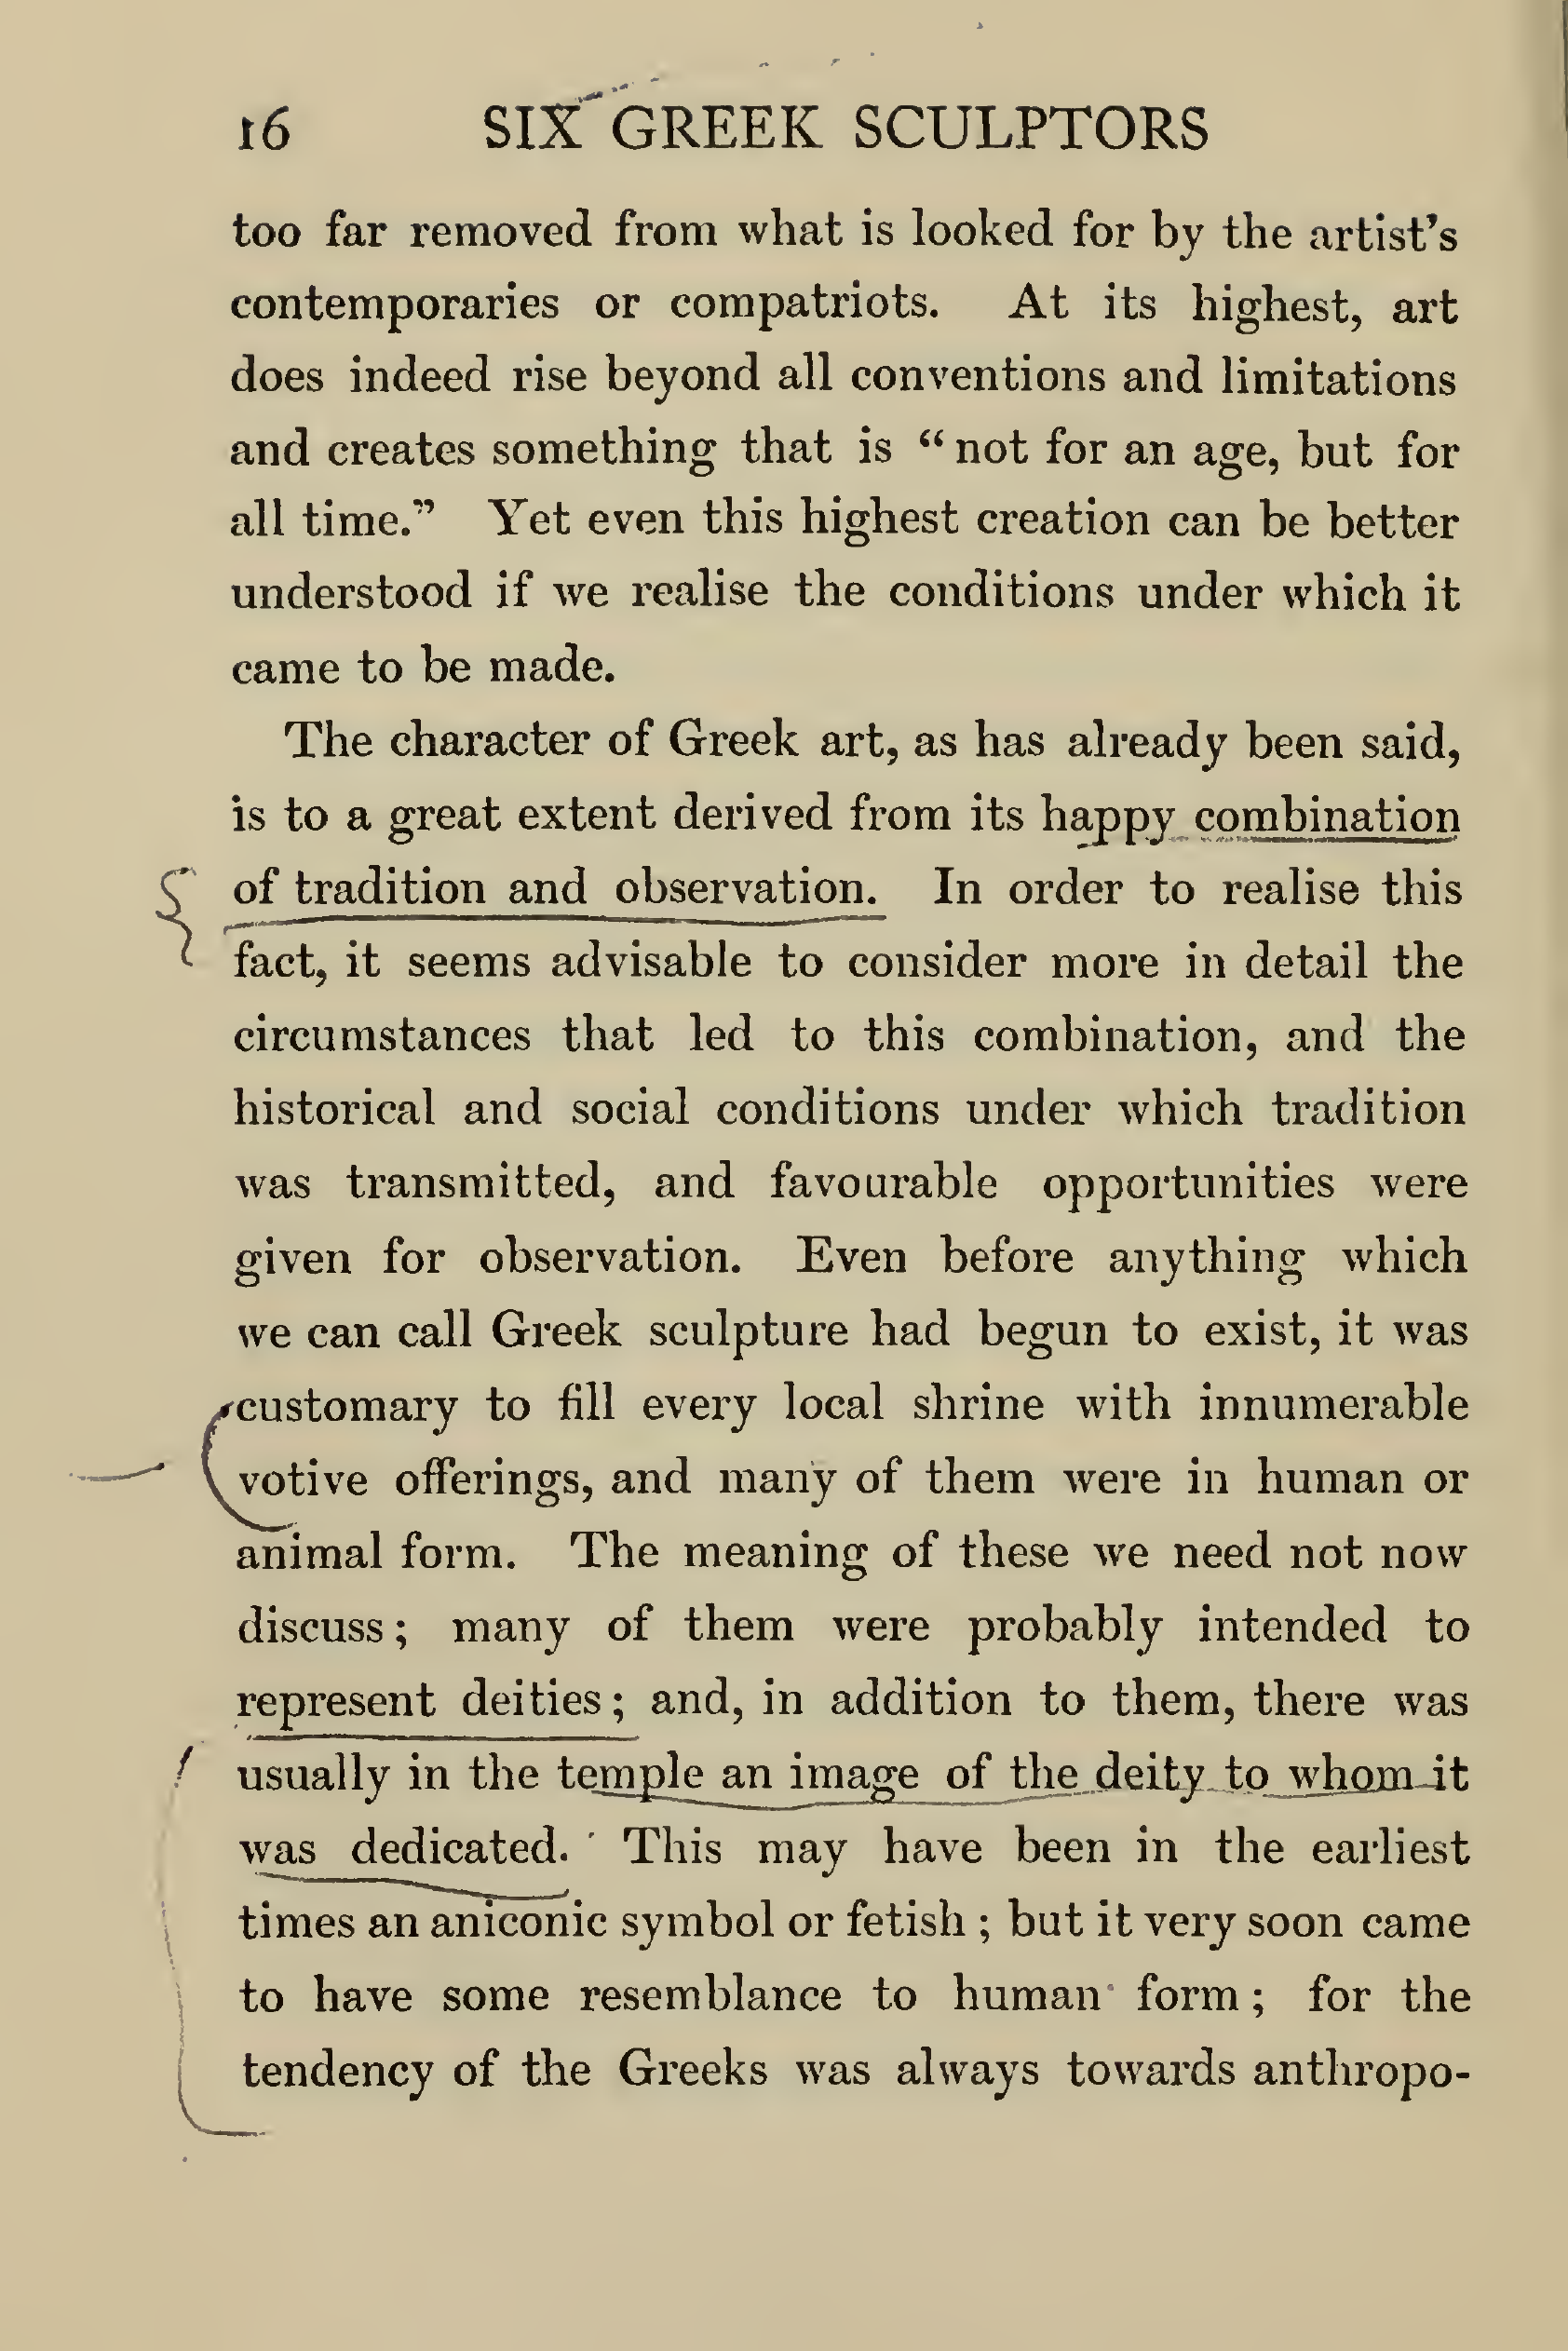 16 SIX GREEK SCULPTORS
too far removed from what is looked for by the artist's
contemporaries or compatriots. At its highest, art
does indeed rise beyond all conventions and limitations
and creates something that is “ not for an age, but for
all time.” Yet even this highest creation can be better
understood if we realise the conditions under which it
came to be made.
The character of Greek art, as has already been said,
is to a great extent derived from its happy combination
of tradition and observation. In order to realise this
fact, it seems advisable to consider more in detail the
circumstances that led to this combination, and the
historical and social conditions under which tradition
was transmitted, and favourable opportunities were
given for observation. Even before anything which
we can call Greek sculpture had begun to exist, it was
customary to fill every local shrine with innumerable
votive offerings, and many of them were in human or
animal form. The meaning of these we need not now
discuss ; many of them were probably intended to
represent deities ; and, in addition to them, there was
usually in the temple an image of the deity to whom it
was dedicated. This may have been in the earliest
times an aniconic symbol or fetish ; but it very soon came
to have some resemblance to human form ; for the
tendency of the Greeks was always towards anthropo-